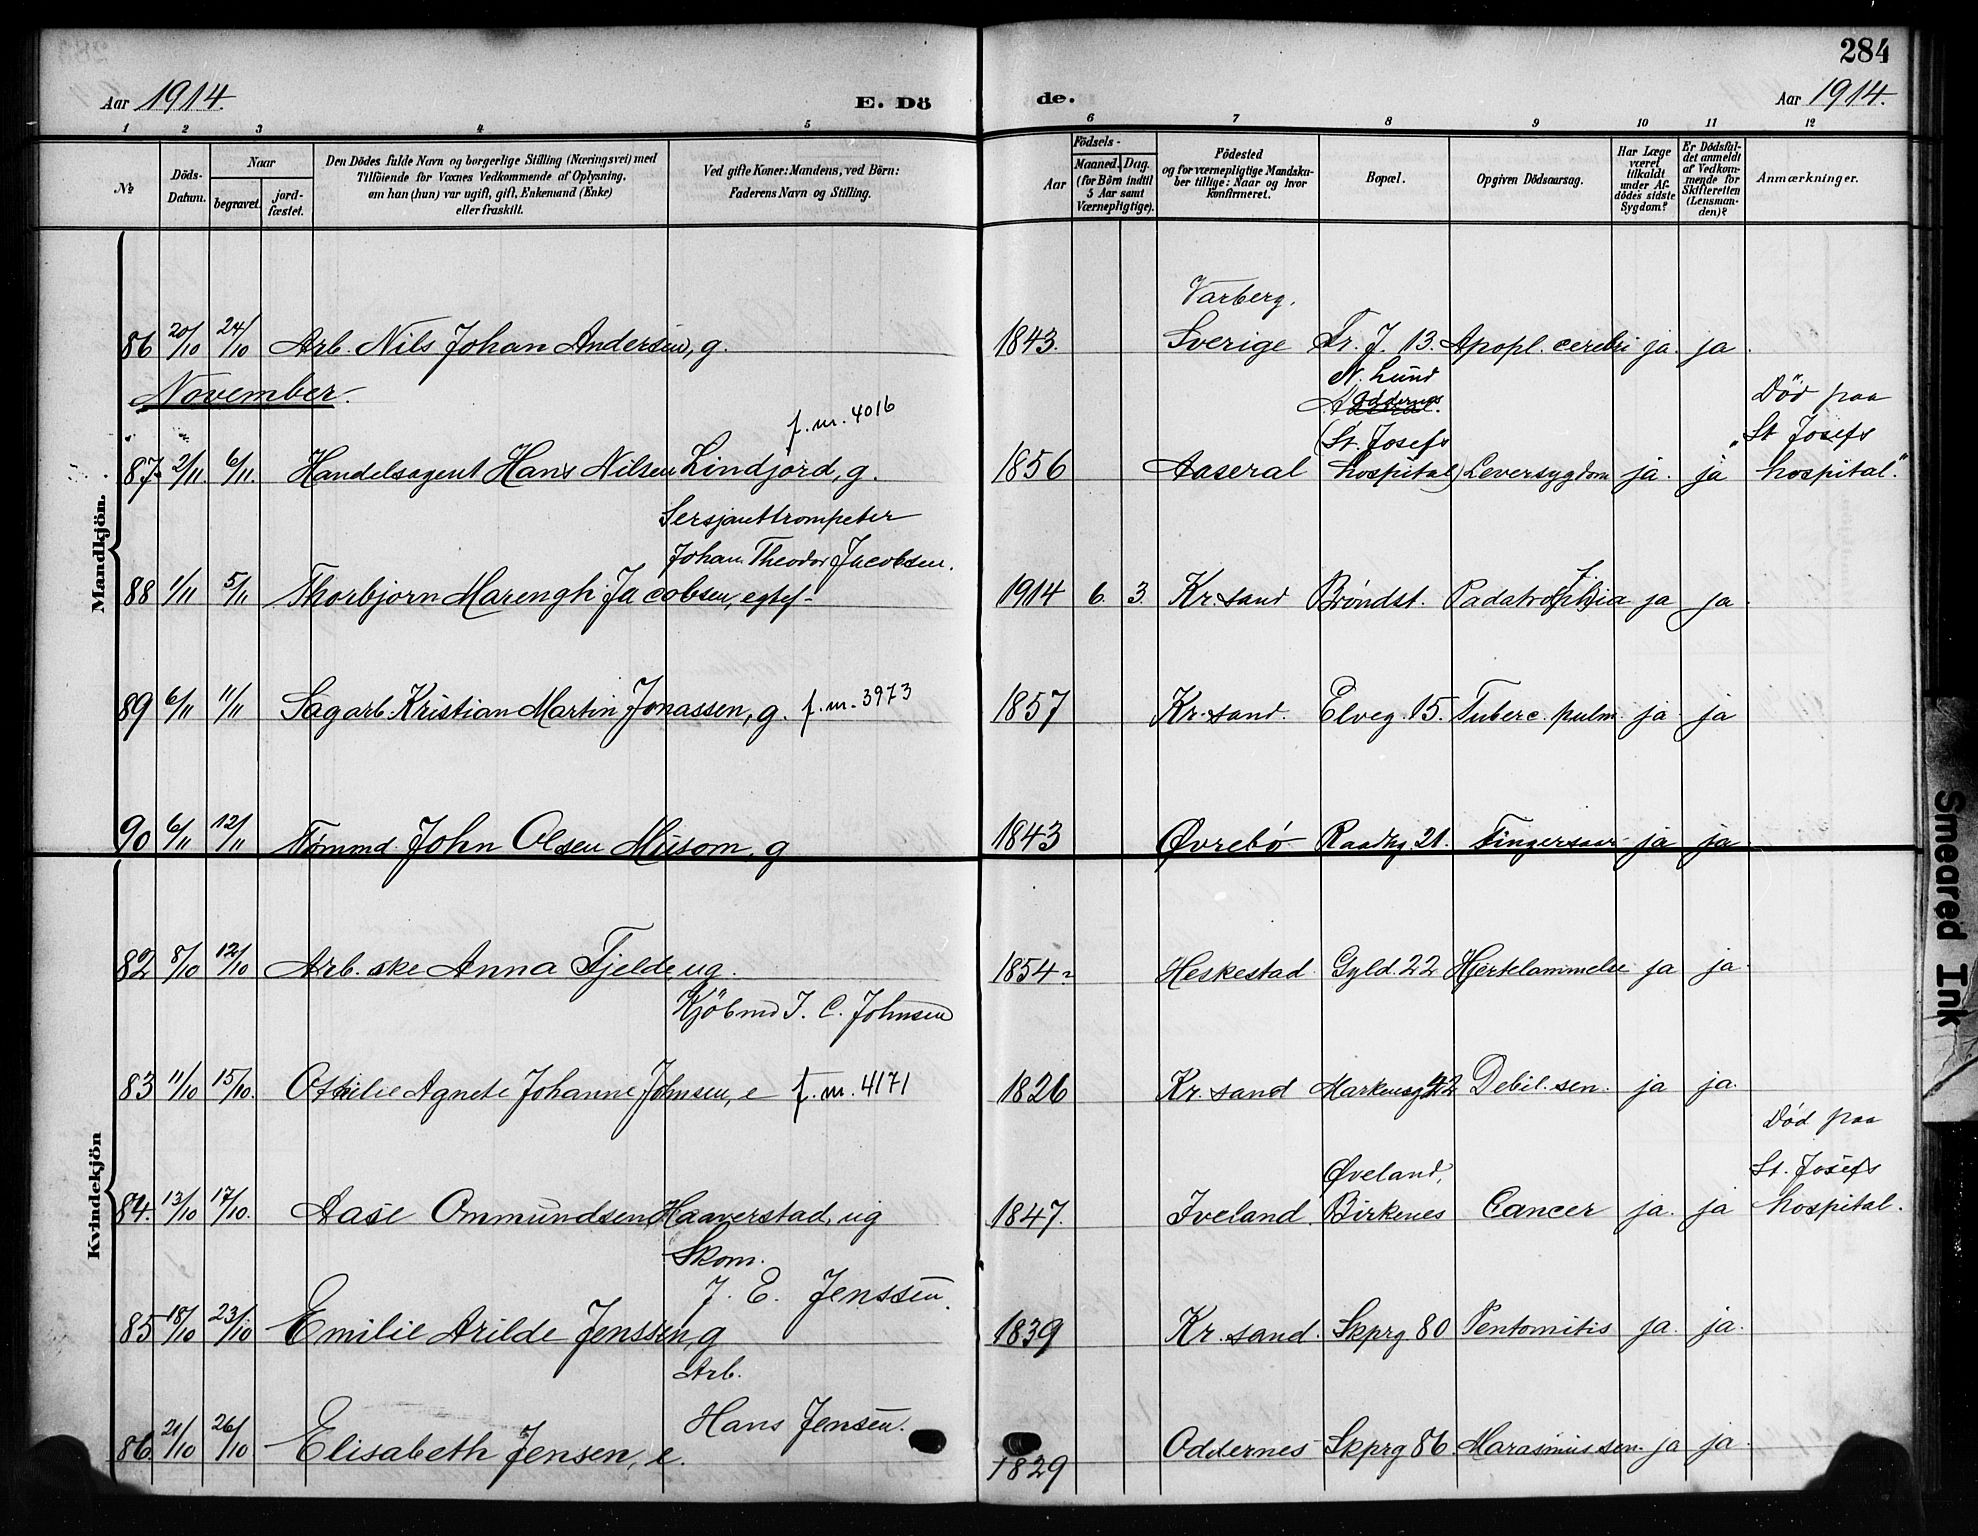 284
Aar 1914. E. Dö de. Aar 1914.
1 2 3 4 5 6 7 8 9 10 11 12
№
Döds-Datum.
Naar
begravet.
jord-fæstet.
Den Dödes fulde Navn og borgerlige Stilling (Næringsvei) med
Tilföiende for Voxnes Vedkommende af Oplysning,
om han (hun) var ugift, gift, Enkemand (Enke)
eller fraskilt.
Ved gifte Koner: Mandens, ved Börn:
Faderens Navn og Stilling.
Födsels-
Aar
Maaned. Dag.
(for Börn indtil
5 Aar samt
Værnepligtige).
Födested
og for værnepligtige Mandska-
ber tillige: Naar og hvor
konfirmeret.
Bopæl.
Opgiven Dödsaarsag.
Har Læge
været
tilkaldt
under Af-
dödes sidste
Sygdom?
Er Dödsfal-
det anmeldt
af Vedkom-
mende for
Skifteretten
(Lensman-
den)?
Anmærkninger.
Mandkjön.
Varberg.
86 20/10 24/10 Arb. Nils Johan Andersen, g. 1843. Sverige Tr. J. 13. Apopl. cerebri ja. ja.
November.
N. Lund
Oddernes
f. m. 4016
(St. Josefs
Död paa
"St Josefs
87. 2/11. 6/11. Handelsagent Hans Nilsen Lindjord, g. 1856 Aaseral hospital) Leversygdom ja. ja hospital."
Sersjanttrompeter
Johan Theodor Jacobsen.
88 1/11 5/11 Thorbjørn Marengh Jacobsen, egtef- 1914 6. 3. Kr. sand Brøndst. Padatrophia ja ja.
89 6/11 11/11 Sagarb. Kristian Martin Jonassen, g. f. m. 3973 1857 Kr. sand. Elveg. 15. Tuberc. pulm. ja ja
90 6/11 12/11 Tømmd. John Olsen Müsom, g 1843 Øvrebö Raadhg 21. Fingersaar ja ja
Kvindekjön
82 8/10 12/10 Arb. ske Anna Fjelde, ug. 1854 Heskestad Gyld. 22 Hjertelammelse ja ja.
Kjöbmd J. C. Johnsen
83 11/10 15/10. Ottilie Agnete Johanne Johnsen, e f. m. 4171 1826 Kr. sand Markensg 42 Debil. sen. ja ja.
Död paa
St. Josefs
Øveland,
84. 13/10 17/10. Aase Ommundsen Haaverstad, ug 1847. Iveland. Birkenes Cancer ja. ja hospital.
Skom.
J. E. Jenssen.
85 18/10 23/10 Emilie Arilde Jenssen, g 1839 Kr. sand. Skprg 80 Pentomitis ja. ja.
Arb.
Hans Jensen.
86. 21/10 26/10 Elisabeth Jensen, e. 1829 Oddernes Skprg 86. Marasmus sen. ja ja.
Smeared Ink